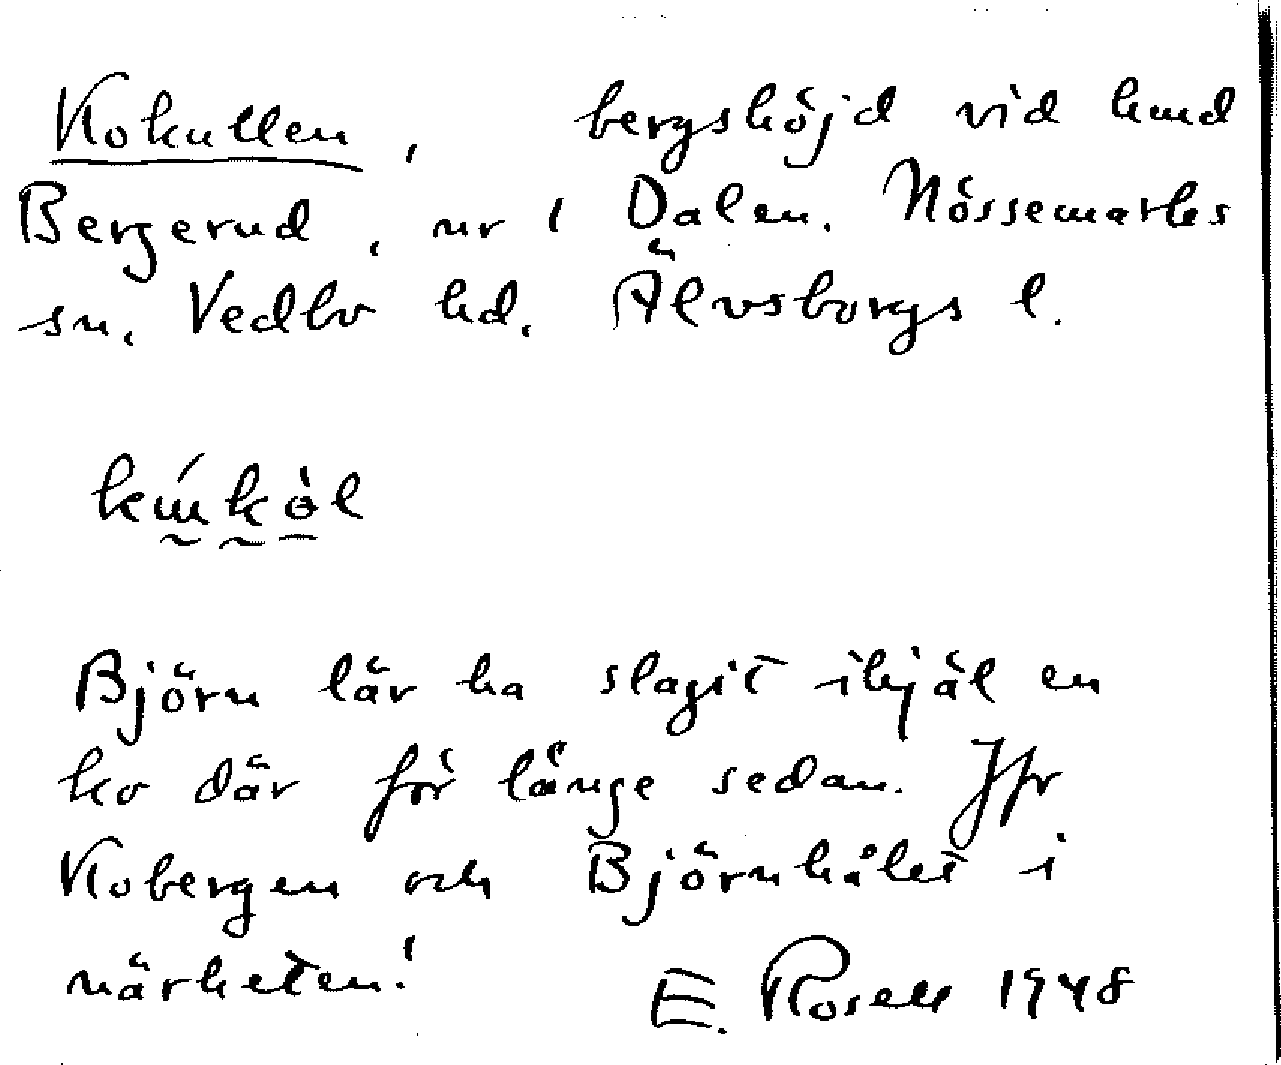 Kokullen, bergshöjd vid hmd
Bergerud, nr 1 Dalen. Nössemarks
sn. Vedbo hd. Älvsborgs l.
Björn lär ha slagit ihjäl en
ko där för länge sedan. Jfr
Kobergen och Björnhålet i
närheten!
E. Rosell 1948